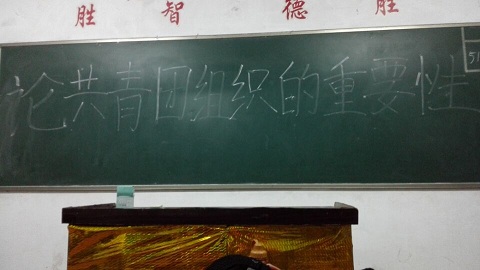 胜 智 德 胜
论共青团组织的重要性
51